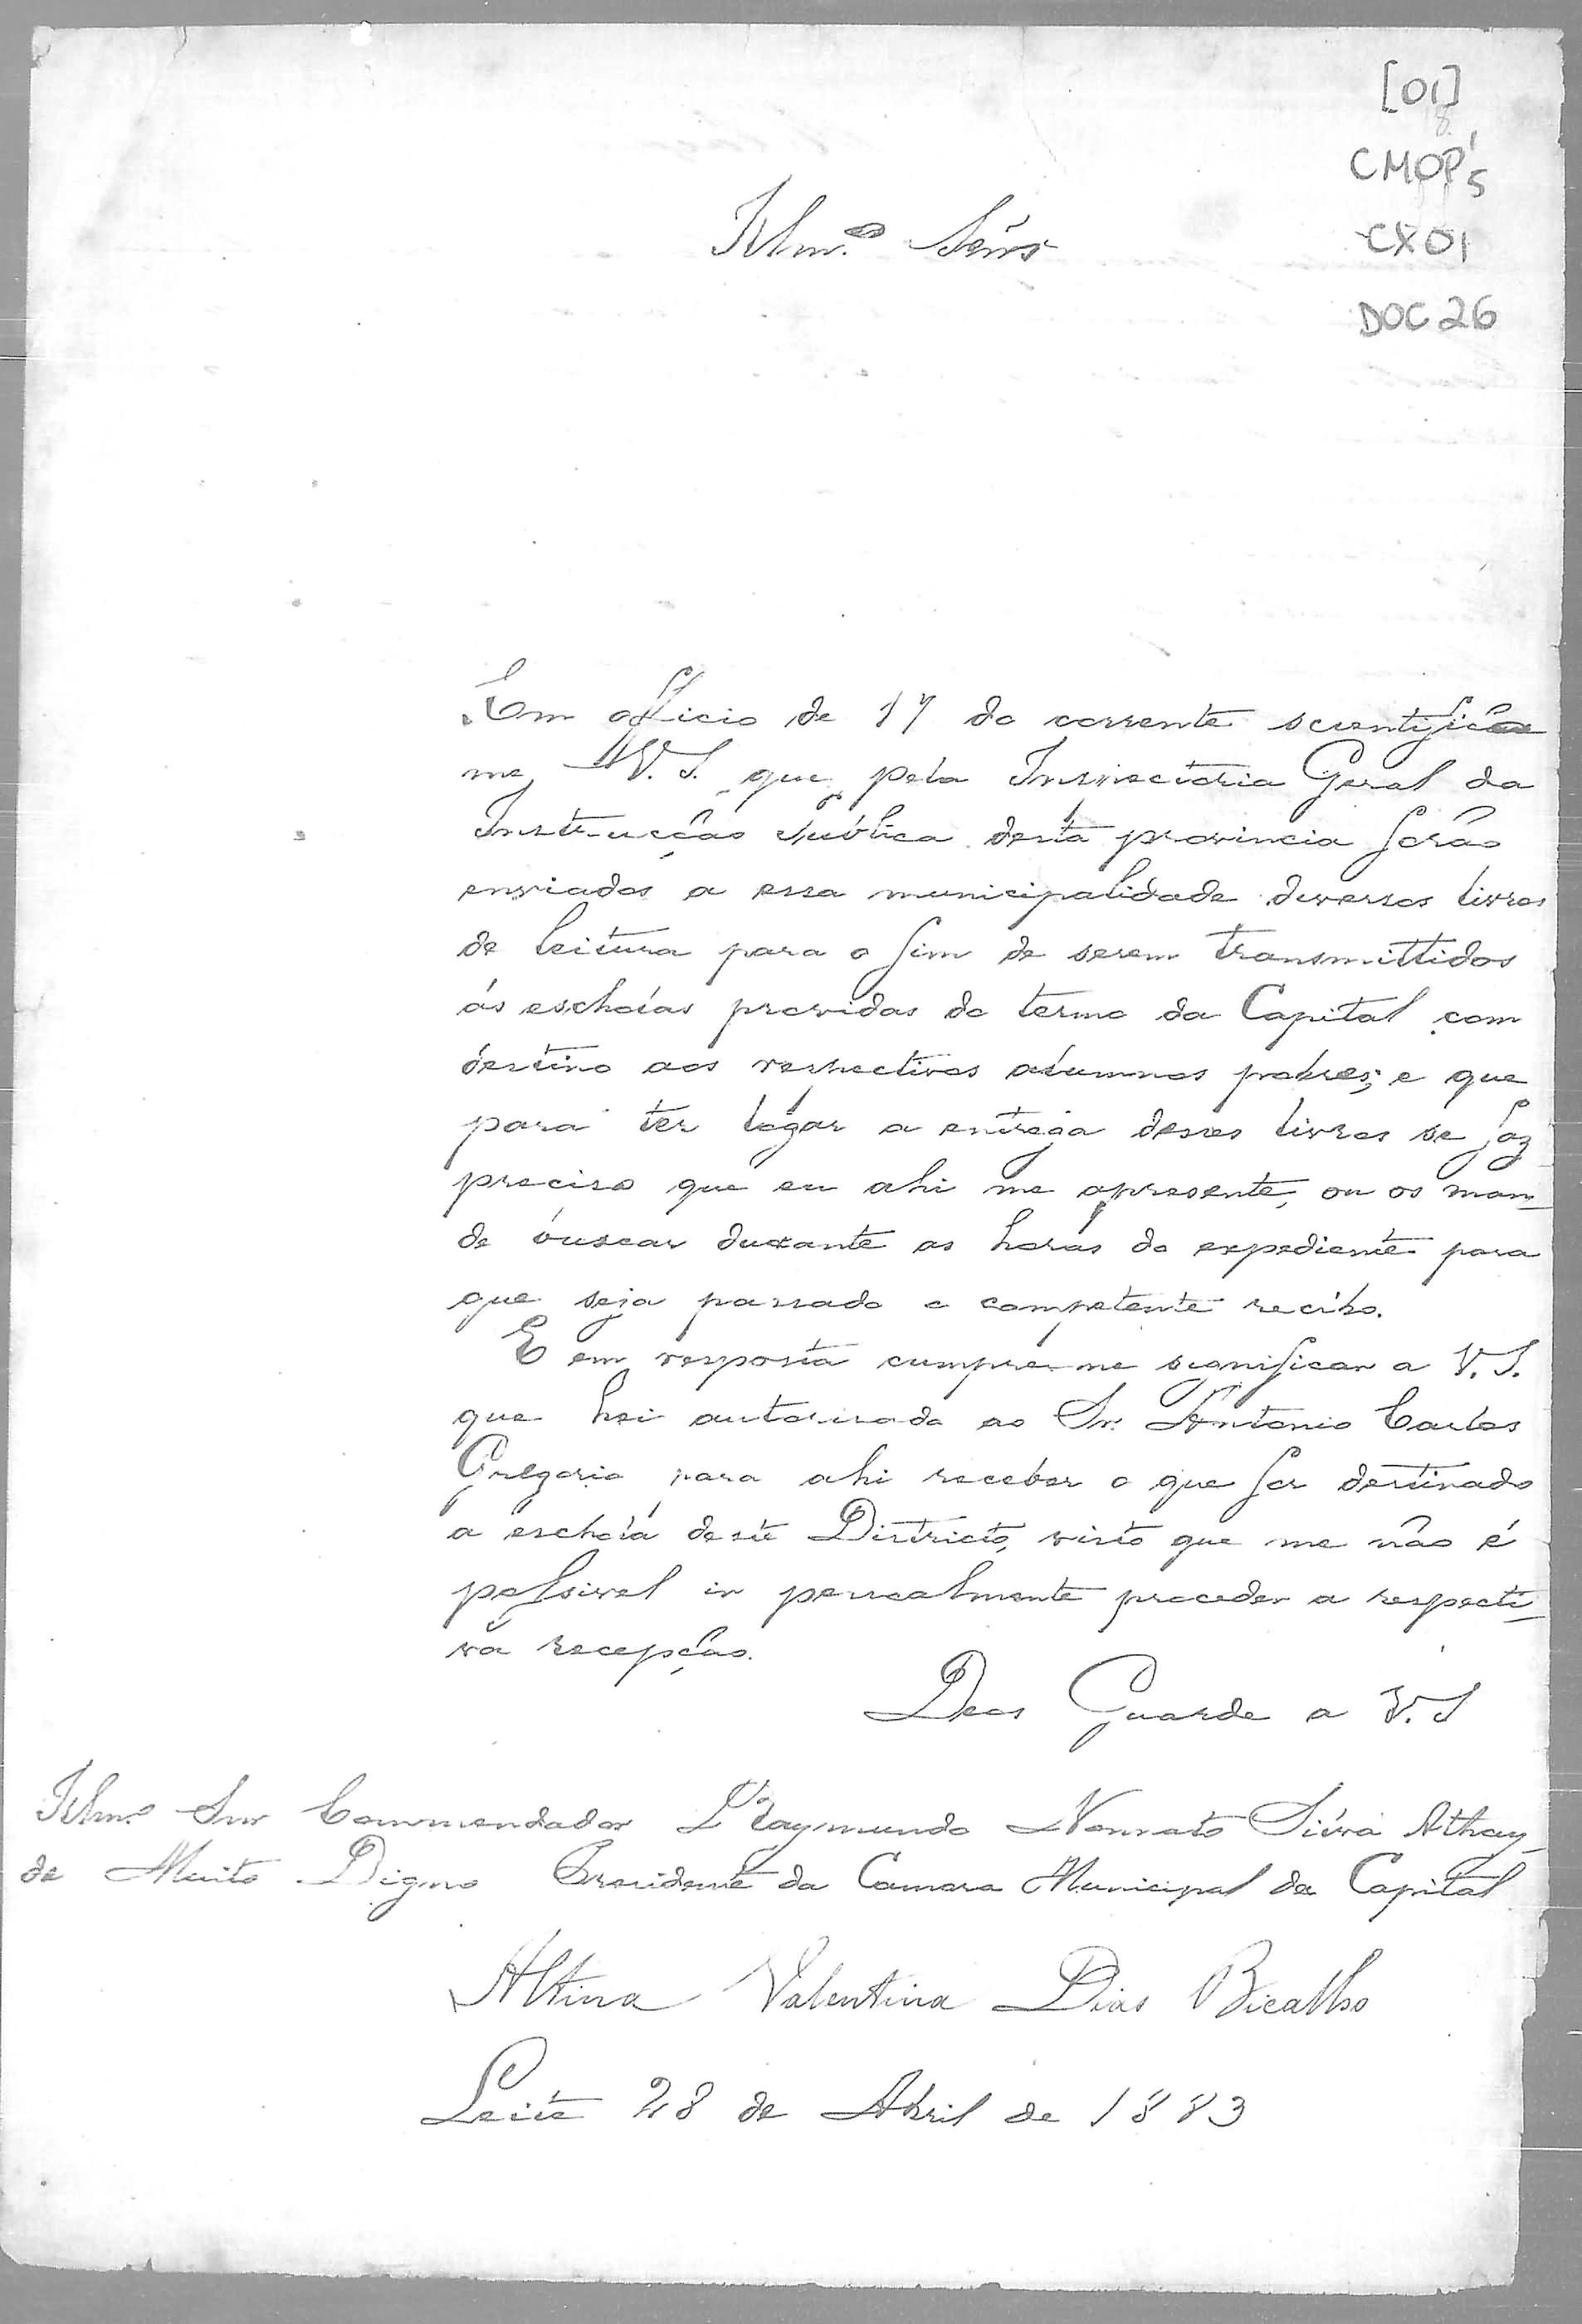 [01]
CMOP's
CX01
DOC 26
Illm.º Senr
Em officio de 17 do corrente scientificou
me V. S. que pela Inspectoria Geral da
Instrucção publica desta provincia forão
enviados a essa municipalidade diversos livros
de leitura para o fim de serem transmittidos
ás escholas providas do termo da Capital com
destino aos respectivos alumnos pobres; e que
para ter logar a entrega desses livros se faz
preciso que eu ahi me apresente, ou os man-
de buscar durante as horas do expediente para
que seja passado o competente recibo.
E em resposta cumpre-me significar a V. S.
que hei autorisado ao Sr. Antonio Carlos
Gregorio para ahi receber o que for destinado
a eschola deste Districto, visto que me não é
possivel ir pessoalmente proceder a respecti-
va recepção.
Deos Guarde a V. S
Illm.º Snr Commendador Raymundo Nonnato Silva Athay-
de Muito Digno Presidente da Camara Municipal da Capital
Altina Valentina Dias Bicalho
Leite 28 de Abril de 1883